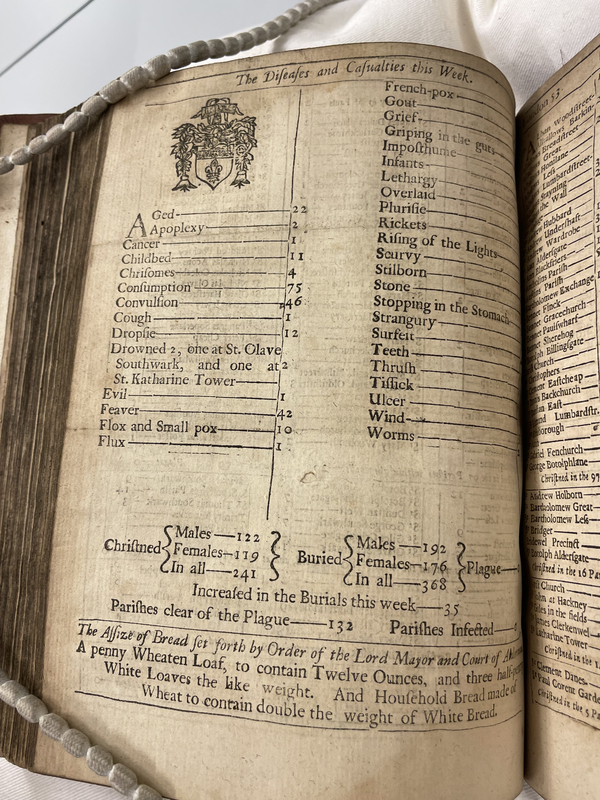 The Diſeaſes and Caſualties this Week.
AGed 22
Apoplexy 2
Cancer 1
Childbed 11
Chriſomes 4
Conſumption 75
Convulſion 46
Cough 1
Dropſie 12
Drowned 2, one at St. Olave
Southwark, and one at 2
St. Katharine Tower
Evil 1
Feaver 42
Flox and Small pox 10
Flux 1
French-pox
Gout
Grief
Griping in the guts
Impoſthume
Infants
Lethargy
Overlaid
Pluriſie
Rickets
Riſing of the Lights
Scurvy
Stilborn
Stone
Stopping in the Stomach
Strangury
Surfeit
Teeth
Thruſh
Tiſſick
Ulcer
Wind
Worms
Chriſtned
Males—122
Females—119
In all—241
Buried
Males—192
Females—176
In all—368
Plague—
Increaſed in the Burials this week—35
Pariſhes clear of the Plague—132 Pariſhes Infected—
The Aſſize of Bread ſet forth by Order of the Lord Mayor and Court of
A penny Wheaten Loaf, to contain Twelve Ounces, and three
White Loaves the like weight. And Houſhold Bread made of
Wheat to contain double the weight of White Bread.
Woodſtreet
Breadſtreet
Great
Honilane
Leſs
Lumbardſtreet
Stayning
the Wall
Hubbard
Underſhaft
Wardrobe
Alderſgate
Blackfriers
Pariſh
Pariſh
Exchange
Finck
Gracechurch
Paulſwharf
Sherehog
Billingſgate
Church
Eaſtcheap
Backchurch
Eaſt
Lumbardſtr.
Fenchurch
George Botolphlane
Chriſtned in the 97
Andrew Holborn
Bartholomew Great
Bartholomew Leſs
Bridget
Precinct
Botolph Alderſgate
Chriſtned in the 16 Par
Church
at Hackney
in the fields
James Clerkenwel
Katharine Tower
Chriſtned in the
Clement Danes
Paul Covent Garde
Chriſtned in the 5 Pa